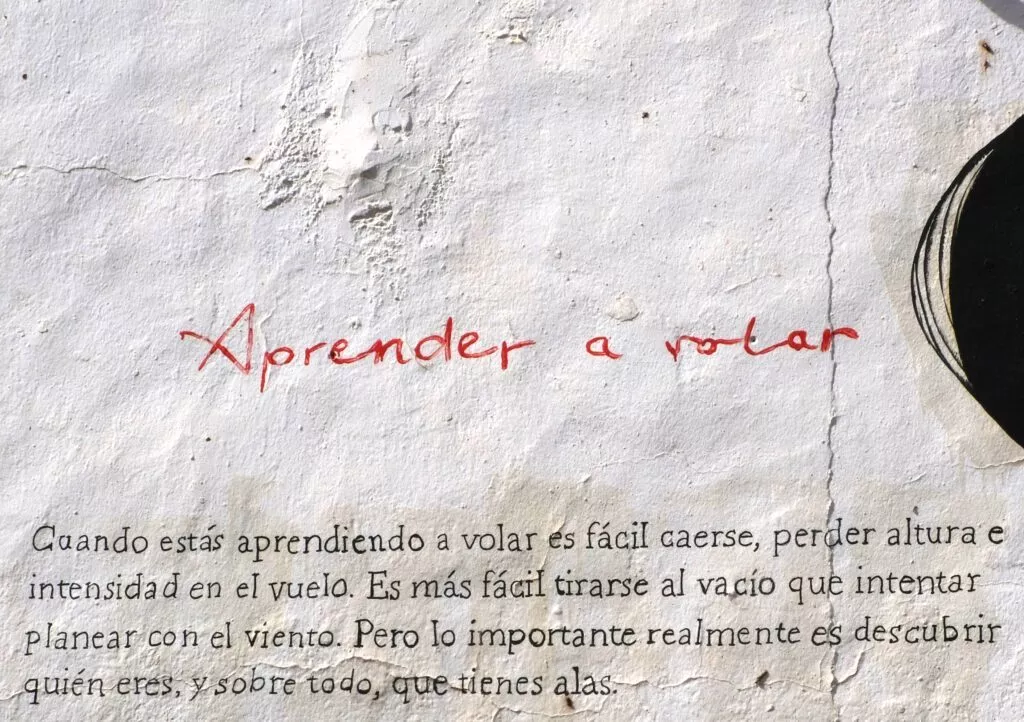 Aprender a volar
Cuando estás aprendiendo a volar es fácil caerse, perder altura e
intensidad en el vuelo. Es más fácil tirarse al vacío que intentar
planear con el viento. Pero lo importante realmente es descubrir
quién eres, y sobre todo, que tienes alas.